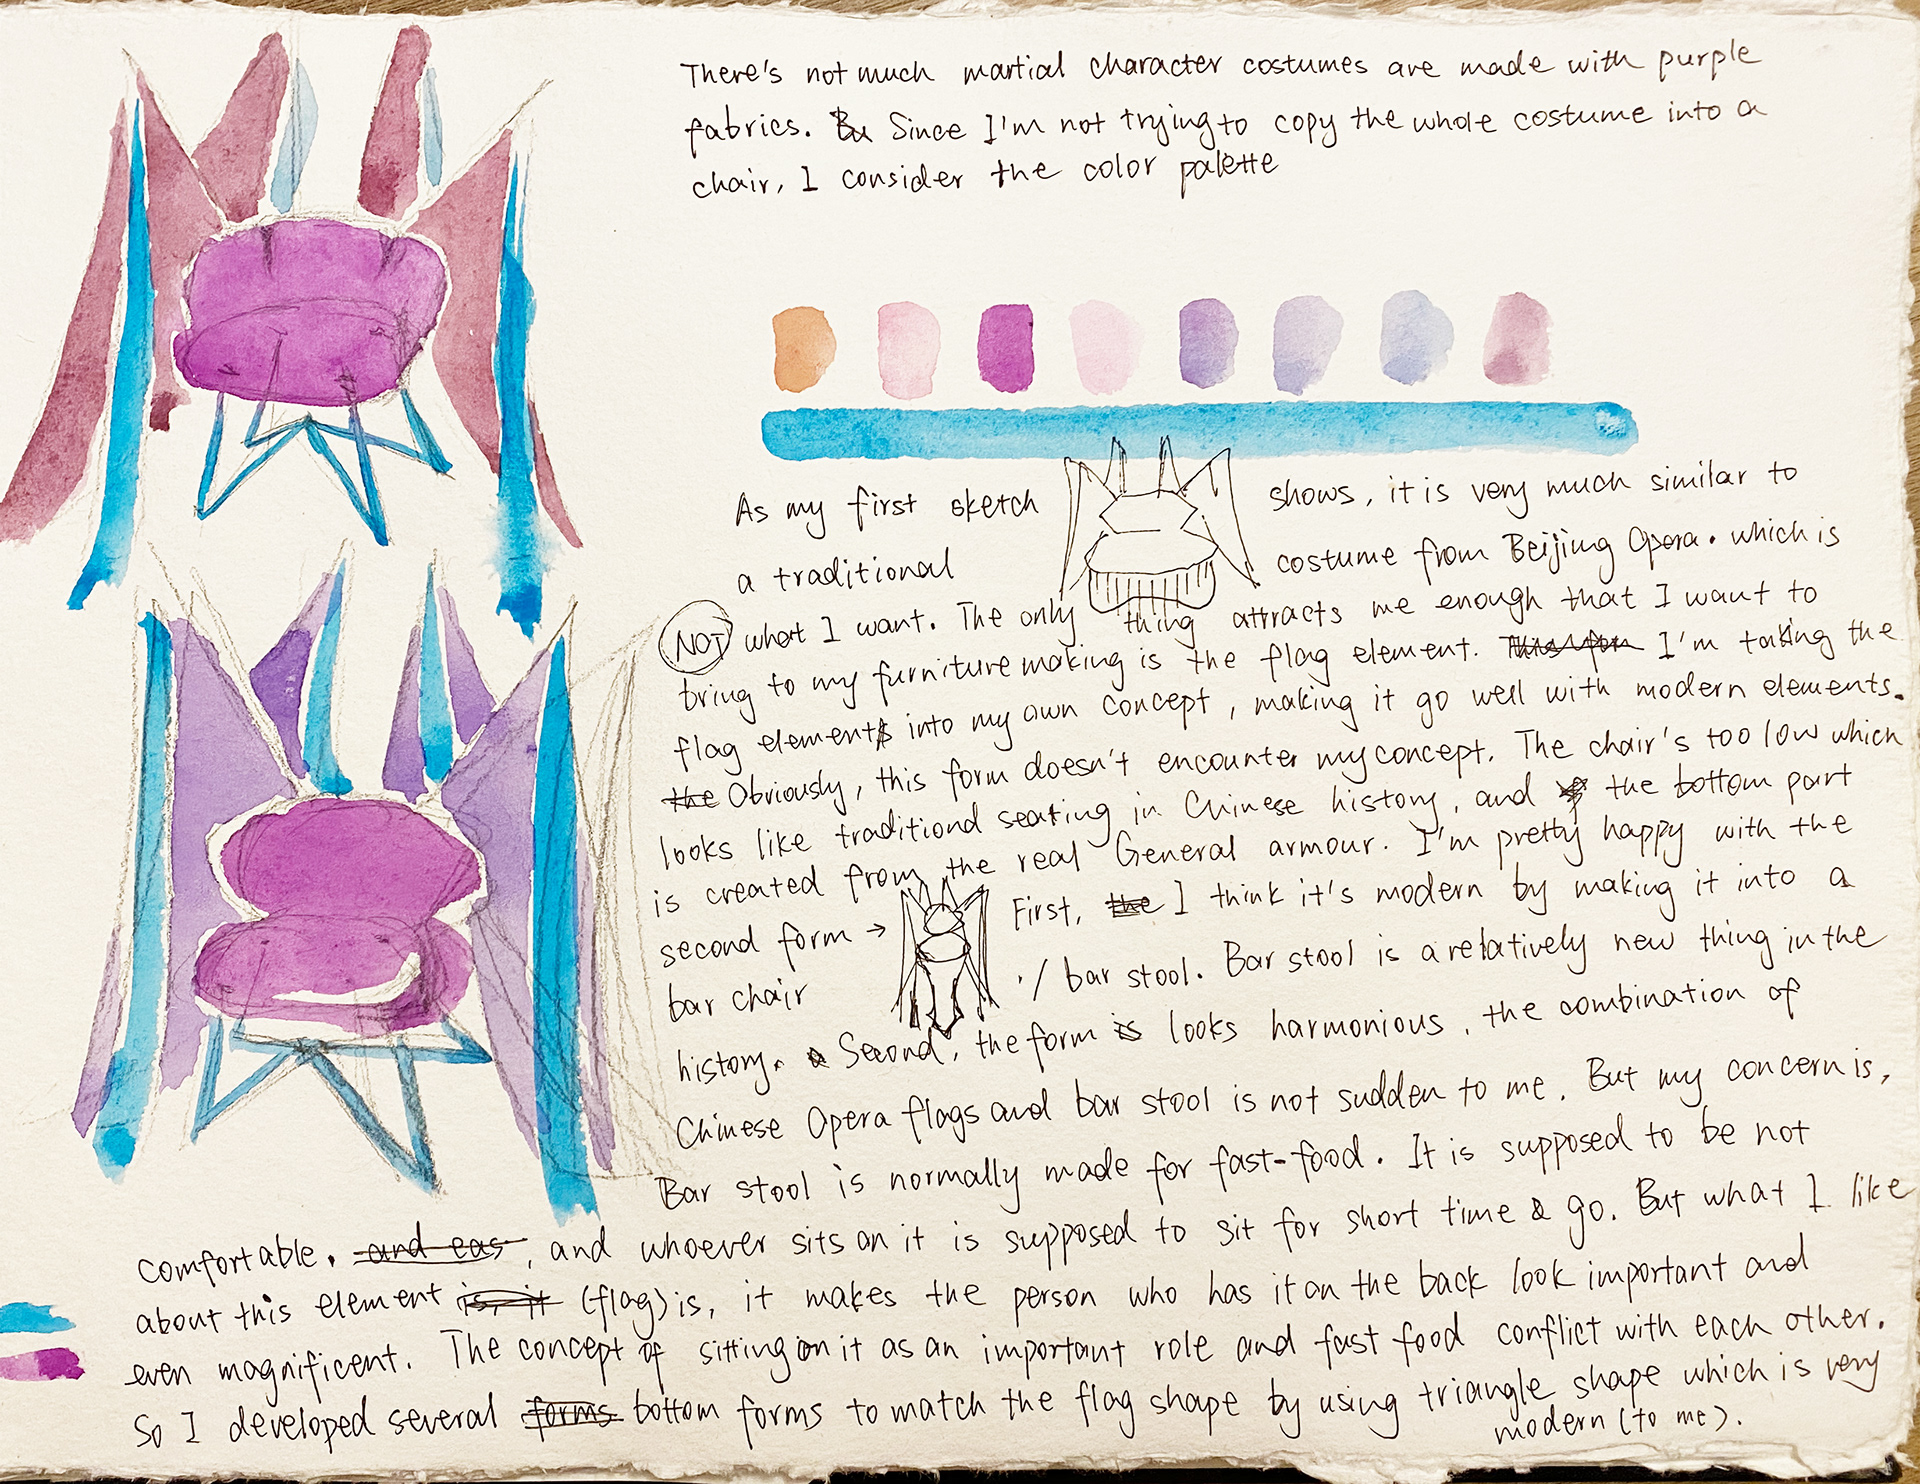 There's not much martial character costumes are made with purple
fabrics. Bu Since I'm not trying to copy the whole costume into a
chair, I consider the color palette
As my first sketch shows, it is very much similar to
a traditional costume from Beijing Opera. which is
NOT what I want. The only thing attracts me enough that I want to
bring to my furniture making is the flag element. I'm taking the
flag element into my own concept, making it go well with modern elements.
the Obviously, this form doesn't encounter my concept. The chair's too low which
looks like traditional seating in Chinese history, and the bottom part
is created from the real General armour. I'm pretty happy with the
second form → First, the I think it's modern by making it into a
bar chair / bar stool. Bar stool is a relatively new thing in the
history. Second, the form is looks harmonious, the combination of
Chinese Opera flags and bar stool is not sudden to me. But my concern is,
Bar stool is normally made for fast-food. It is supposed to be not
comfortable. and eas, and whoever sits on it is supposed to sit for short time & go. But what I like
about this element is, it (flag) is, it makes the person who has it on the back look important and
even magnificent. The concept of sitting on it as an important role and fast food conflict with each other.
So I developed several forms bottom forms to match the flag shape by using triangle shape which is very
modern (to me).